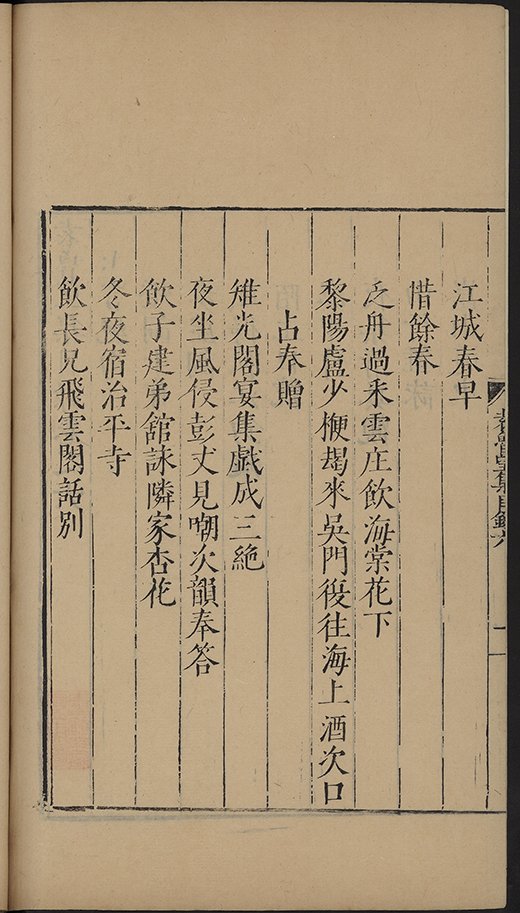 江城春早
惜餘春
泛舟過采雲庄飲海棠花下
黎陽盧少楩朅來吳門復往海上酒次口
占奉贈
雉光閣宴集戯成三絶
夜坐風侵彭丈見嘲次韻奉答
飲子建弟舘詠隣家杏花
冬夜宿治平寺
飲長兄飛雲閣話別